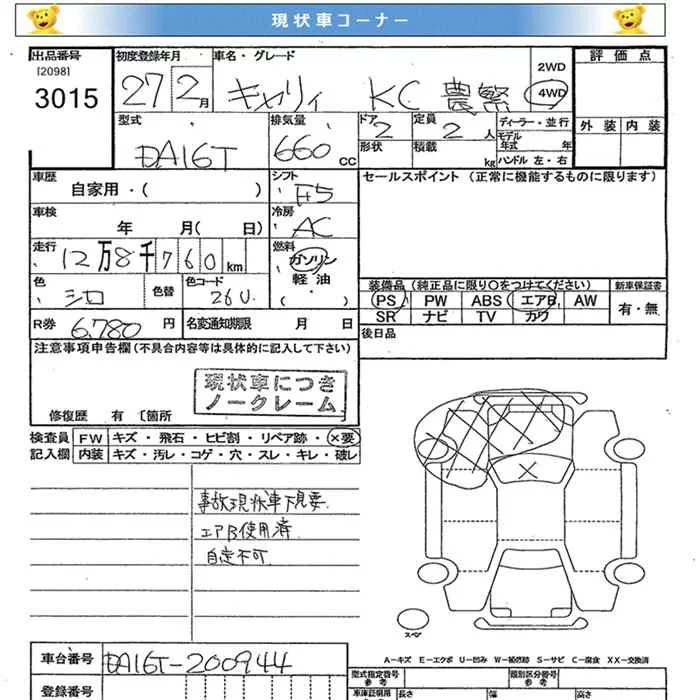 現状車コーナー
出品番号
[2098]
3015
初度登録年月
27 2月
車名・グレード
キャリィ KC 農繁
2WD
4WD
評価点
外装 内装
型式
DA16T
排気量
660 cc
ドア 2
形状
定員 2 人
積載 kg
ディーラー・並行
モデル年式 年
ハンドル 左・右
車歴
自家用・( )
シフト
F5
セールスポイント (正常に機能するものに限ります)
車検
年 月( 日)
冷房
AC
走行
12万8千760km
燃料
ガソリン
軽油
・( )
色
シロ
色替
色コード
26U
装備品(純正品に限り○をつけてください)
PS PW ABS エアB AW
SR ナビ TV カワ
新車保証書
有・無
R券 6,780 円
名変通知期限 月 日
後日品
注意事項申告欄(不具合内容等は具体的に記入して下さい)
現状車につき
ノークレーム
修復歴 有〔箇所
検査員 FW キズ・飛石・ヒビ割・リペア跡・×要
記入欄 内装 キズ・汚レ・コゲ・穴・スレ・キレ・破レ
事故現状車下見要
エアB使用済
自走不可
スペア
A-キズ E-エクボ U-凹み W-補修跡 S-サビ C-腐食 XX-交換済
車台番号 DA16T-200944
登録番号
型式指定番号
参考
類別区分番号
参考
車庫証明用
長さ 幅 高さ